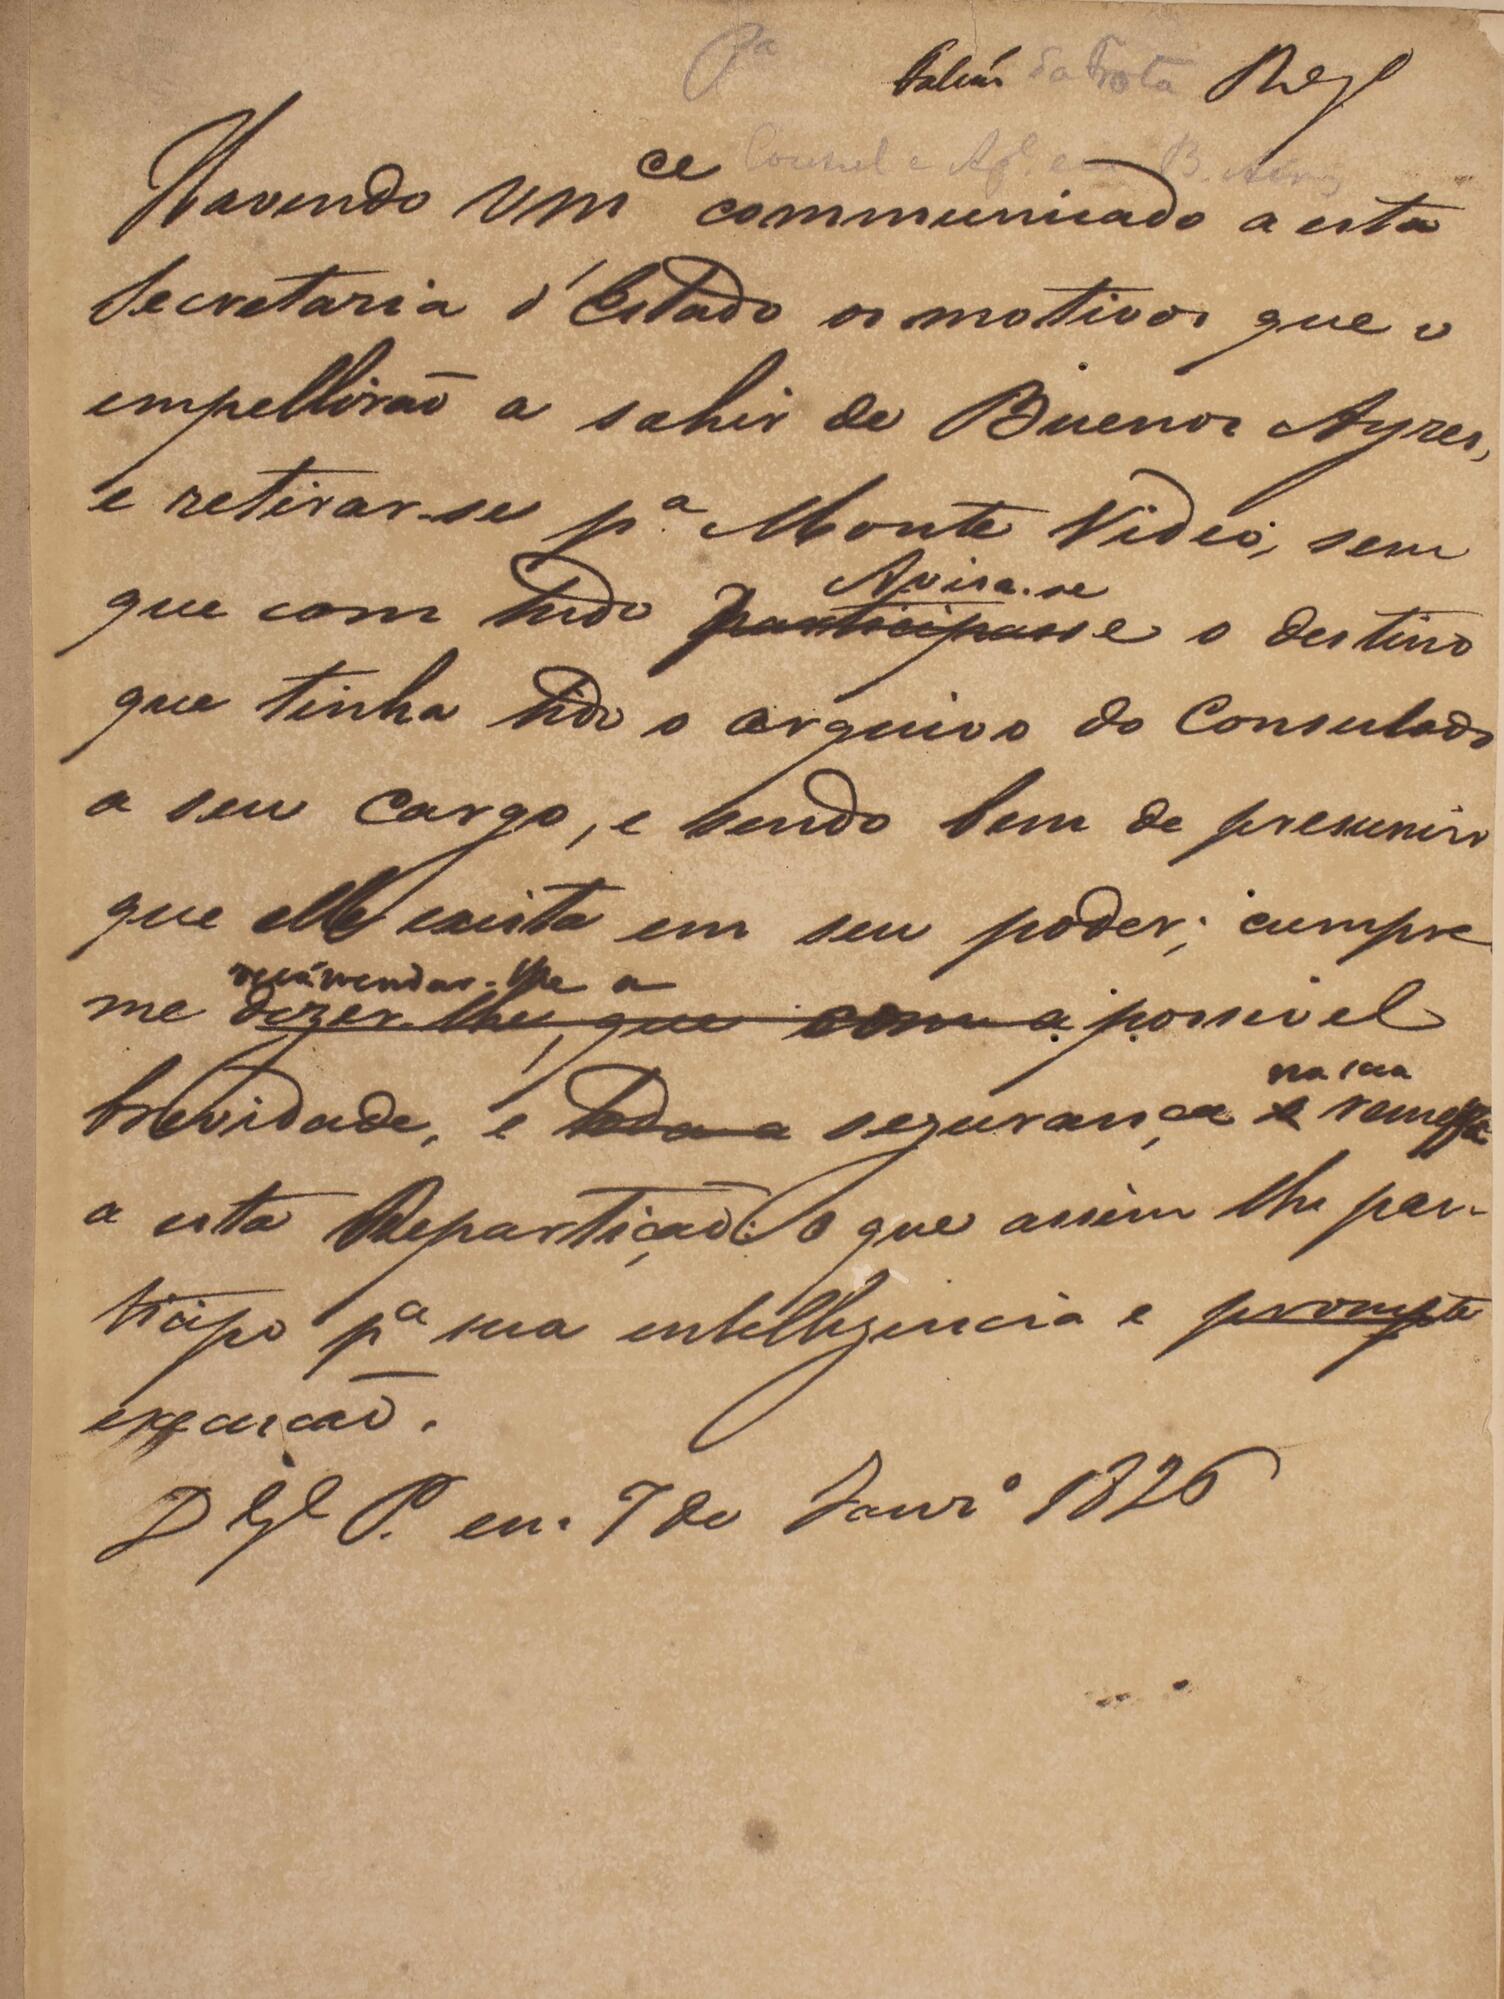 Pª Falcão da Frota Reg
Consul e Agᵉ em B. Ayres
Havendo Vmᶜᵉ communicado a esta
Secretaria d'Estado os motivos que o
empellirão a sahir de Buenos Ayres,
e retirar-se pª Monte Video, sem
Avisa-se
que com tudo participasse o destino
que tinha tido o arquivo do Consulado
a seu Cargo, e sendo bem de presumir
que elle exista em seu poder; cumpre
recõmendar-lhe a
me dizer-lhe, que com a possivel
na sua
brevidade, e toda a segurança e remessa
a esta Repartição: O que assim lhe par-
ticipo pª sua intelligencia e prompta
execucão.
D gᵈᵉ P. em 7 de Janrº 1826